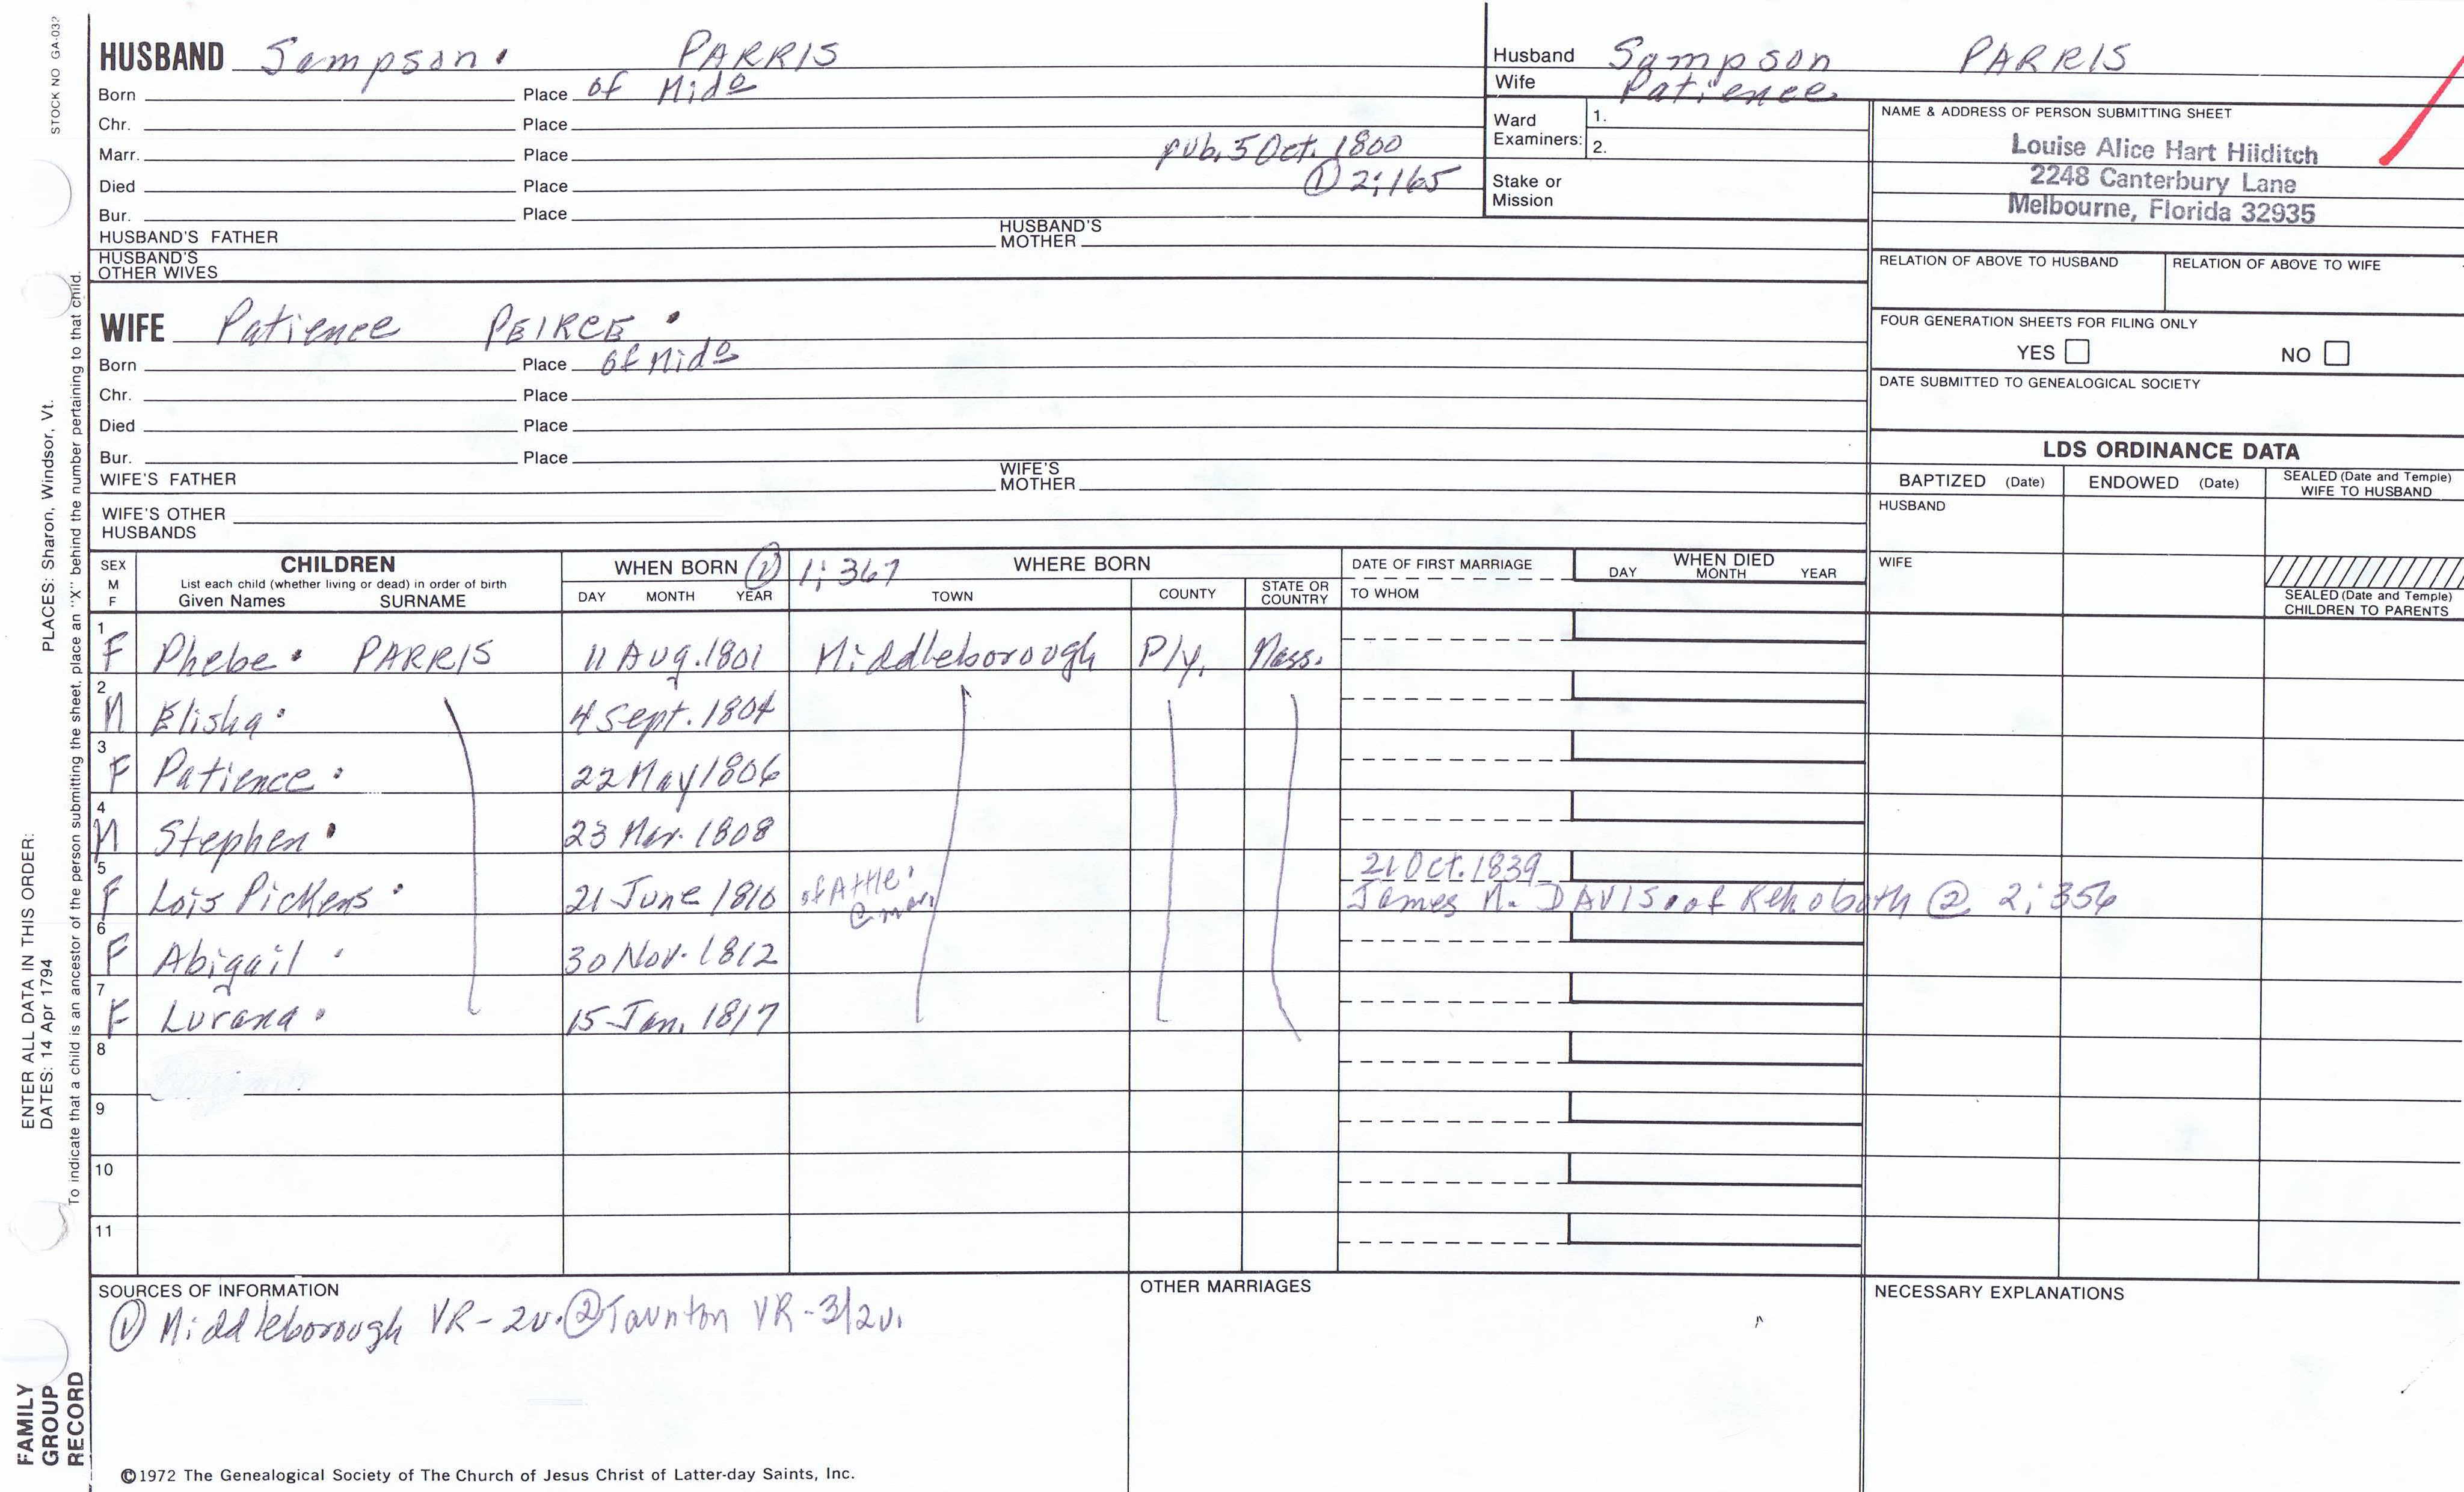 STOCK NO GA-032
HUSBAND Sampson. PARRIS
Born Place of Mido
Chr. Place
Marr. Place pub. 5 Oct. 1800
Died Place ① 2:165
Bur. Place
HUSBAND'S FATHER HUSBAND'S MOTHER
HUSBAND'S OTHER WIVES
Husband Sampson PARRIS
Wife Patience
Ward Examiners: 1.
2.
Stake or Mission
NAME & ADDRESS OF PERSON SUBMITTING SHEET
Louise Alice Hart Hilditch
2248 Canterbury Lane
Melbourne, Florida 32935
RELATION OF ABOVE TO HUSBAND RELATION OF ABOVE TO WIFE
FOUR GENERATION SHEETS FOR FILING ONLY
YES NO
DATE SUBMITTED TO GENEALOGICAL SOCIETY
WIFE Patience PEIRCE.
Born Place of Mido
Chr. Place
Died Place
Bur. Place
WIFE'S FATHER WIFE'S MOTHER
WIFE'S OTHER HUSBANDS
LDS ORDINANCE DATA
BAPTIZED (Date) ENDOWED (Date) SEALED (Date and Temple) WIFE TO HUSBAND
HUSBAND
WIFE
SEALED (Date and Temple) CHILDREN TO PARENTS
SEX M F
CHILDREN
List each child (whether living or dead) in order of birth
Given Names SURNAME
WHEN BORN ① 1:367 WHERE BORN
DAY MONTH YEAR TOWN COUNTY STATE OR COUNTRY
DATE OF FIRST MARRIAGE
TO WHOM
WHEN DIED
DAY MONTH YEAR
1 F Phebe. PARRIS 11 Aug. 1801 Middleborough Ply. Mass.
2 M Elisha. 4 Sept. 1804
3 F Patience. 22 May 1806
4 M Stephen. 23 Mar. 1808
5 F Lois Pickens. 21 June 1810 of Attle. @ marr 21 Oct. 1839
James N. DAVIS. of Rehoboth @ 2:356
6 F Abigail. 30 Nov. 1812
7 F Lurana. 15 Jan. 1817
8
9
10
11
SOURCES OF INFORMATION
① Middleborough VR-2v. ② Taunton VR-3/2v.
OTHER MARRIAGES
NECESSARY EXPLANATIONS
©1972 The Genealogical Society of The Church of Jesus Christ of Latter-day Saints, Inc.
FAMILY GROUP RECORD
ENTER ALL DATA IN THIS ORDER:
DATES: 14 Apr 1794 PLACES: Sharon, Windsor, Vt.
To indicate that a child is an ancestor of the person submitting the sheet, place an "X" behind the number pertaining to that child.